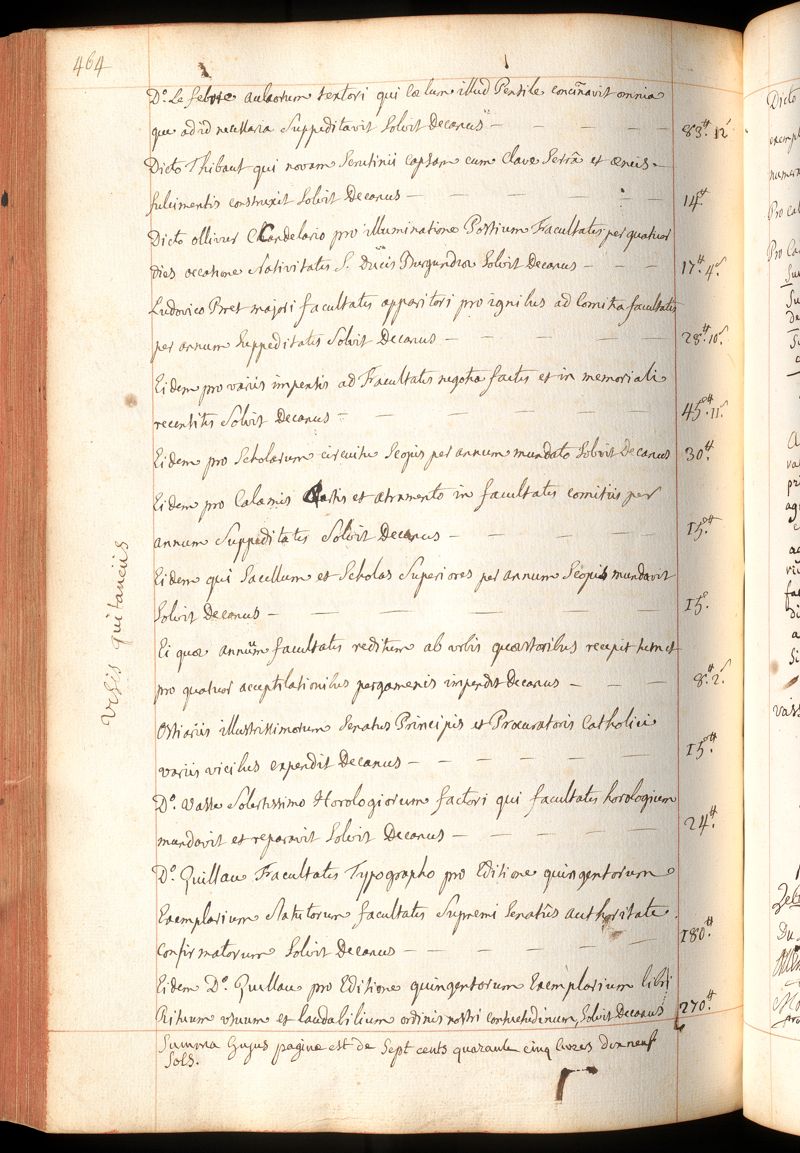 464
D.º Le febvre aulæorum textori qui Cœlum illud Pensile concinavit omnia
que ad id necessaria Suppeditavit Solvit Decanus — 83.tt 12.s
Dicto Thibaut qui novam Scrutinii capsam cum Clave Serrâ et æneis
fulcimentis construxit Solvit Decanus — 14.tt
Dicto ollivier Candelario pro illuminatione Portium Facultatis per quatuor
dies occasione Nativitatis S. Ducis Burgundiæ Solvit Decanus — 17.tt 4.s
Ludovico Bret majori facultatis apparitori pro ignibus ad Comitia facultatis
per annum Suppeditatis Solvit Decanus — 28.tt 10.s
Eidem pro variis impensis ad Facultatis negotia factis et in memoriali
recensitis Solvit Decanus — 45.tt 11.s
Eidem pro Scholarum circuitu Scopis per annum mundato Solvit Decanus 30.tt
Eidem pro Calamis Cartis et atramento in facultatis comitiis per
annum Suppeditatis Solvit Decanus — 15.tt
Eidem qui Sacellum et Scholas Superiores per annum Scopis mundavit
Solvit Decanus — 15.
Ei quæ annuum facultatis reditum ab urbis quæstoribus recepit tum et
pro quatuor acceptilationibus pergamenis impendit Decanus — 8.tt 2.s
Ostiariis illustrissimorum Senatus Principis et Procuratoris Catholici
variis vicibus expendit Decanus — 15.tt
D.º Vasse Solertissimo Horologiorum factori qui facultatis horologium
mundavit et reparavit Solvit Decanus — 24.tt
D.º Quillau Facultatis Typographo pro Editione quingentorum
Exemplarium Statutorum facultatis Supremi Senatûs authoritate
confirmatorum Solvit Decanus — 180.tt
Eidem D.º Quillau pro Editione quingentorum Exemplarium libri
Rituum usuum et laudabilium ordinis nostri consuetudinum, Solvit Decanus 270.tt
Summa hujus paginæ est de Sept cents quarante cinq livres dix neuf
Sols.
Visis quitanciis